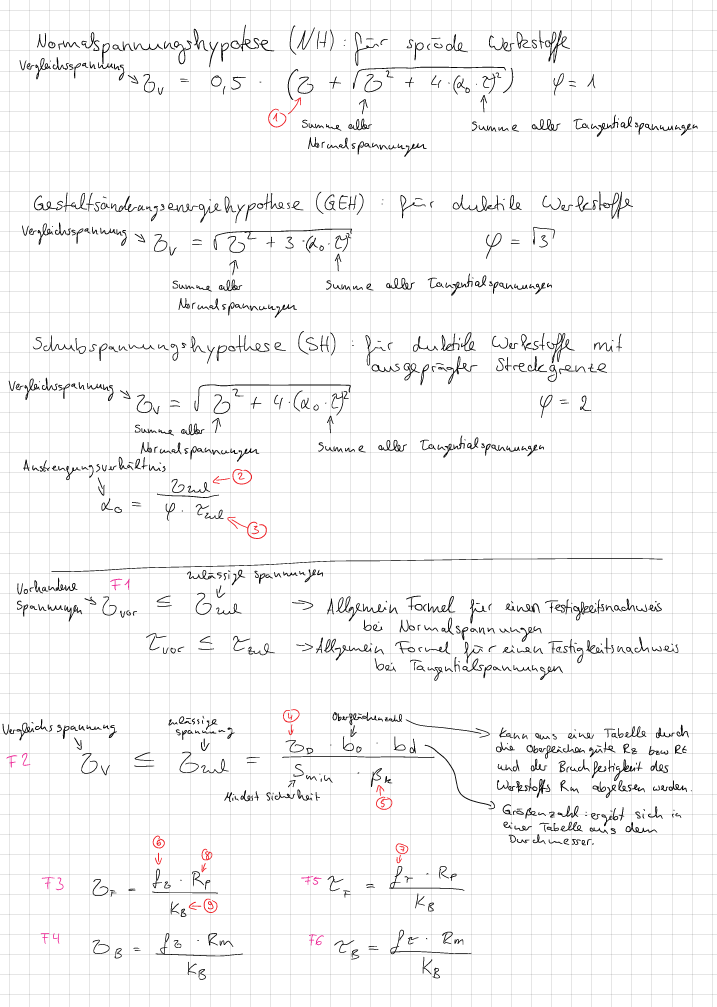 Normalspannungshypotese (NH) : für spröde Werkstoffe
Vergleichsspannung
σv = 0,5 · (σ + √σ² + 4·(α₀·τ)²) φ = 1
①
Summe aller Summe aller Tangentialspannungen
Normalspannungen
Gestaltsänderungsenergiehypothese (GEH) : für duktile Werkstoffe
Vergleichsspannung
σv = √σ² + 3·(α₀·τ)² φ = √3
Summe aller Summe aller Tangentialspannungen
Normalspannungen
Schubspannungshypothese (SH) : für duktile Werkstoffe mit
ausgeprägter Streckgrente
Vergleichsspannung
σv = √σ² + 4·(α₀·τ)² φ = 2
Summe aller
Normalspannungen Summe aller Tangentialspannungen
Anstrengungsverhältnis
α₀ = σzul / φ · τzul
② ③
zulässige Spannungen
Vorhandene F1
Spannungen σvor ≤ σzul → Allgemein Formel für einen Festigkeitsnachweis
bei Normalspannungen
τvor ≤ τzul → Allgemein Formel für einen Festigkeitsnachweis
bei Tangentialspannungen
Vergleichsspannung zulässige spannung ④ Oberflächenzahl
F2 σv ≤ σzul = σD · bo · bd / Smin · βk
Mindest Sicherheit ⑤
kann aus einer Tabelle durch
die Oberfläechengüte Rz bzw Rt
und der Bruchfestigkeit des
Werkstoffs Rm abgelesen werden.
Größenzahl : ergibt sich in
einer Tabelle aus dem
Durchmesser.
⑥ ⑧ ⑦
F3 σF = fσ · Rp / KB F5 τF = fτ · Rp / KB
⑨
F4 σB = fσ · Rm / KB F6 τB = fτ · Rm / KB